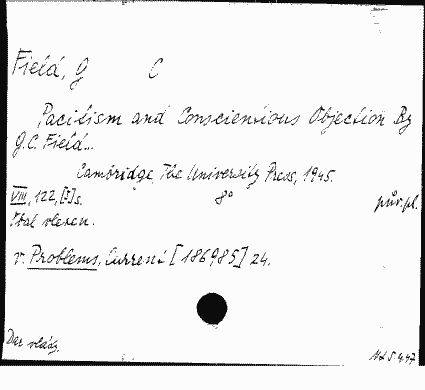 Field, G C
Pacifism and Conscientious Objection By
G.C. Field...
Cambridge, The University Press, 1945.
VIII, 122, [1] s. 8° pův. pl.
Obal vlepen.
v. Problems, Current [186985] 24.
Dar vlády.